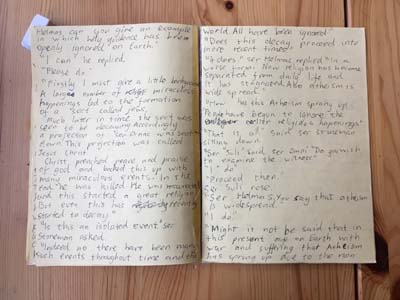 Helmas can you give an example
in which holy guidance has been
openly ignored on Earth."
"I can" he replied.
"Please do."
"Firstly I must give a little background
A long number of miraculous
happenings led to the formation
of a sect called jews.
Much later in time the sect was
seen to be decaying Accordingly
a projection of Ser was sent
down. This projection was called
Jesus Christ.
Christ preached prayer and praise
of god and backed this up with
many miraculous events. In the
end he was killed. He was ressurected
and this started a great religion.
But even this has recently
started to decay."
"Is this an isolated event" ser
Stoneman asked.
"Indeed no there have been many
such events throughout time and the
world. All have been ignored"
"Does this decay proceed into
more recent times?"
"It does" ser Helmas replied "In a
worse form. Now religion has become
separated from daily life and
it has stagnated. Also atheism is
wide spread."
"How has this Atheism sprung up?"
"People have begun to ignore the
earlier religious happenings"
"That is all" said ser Stoneman
sitting down.
"Ser Suli" said ser "Do you wish
to examine the witness"
"I do"
"Proceed then.
Ser Suli rose.
"Ser Helmas, you say that atheism
is widespread."
"I do"
"Might it not be said that in
this present age on Earth with
war and suffering that Atheism
has sprung up due to the non